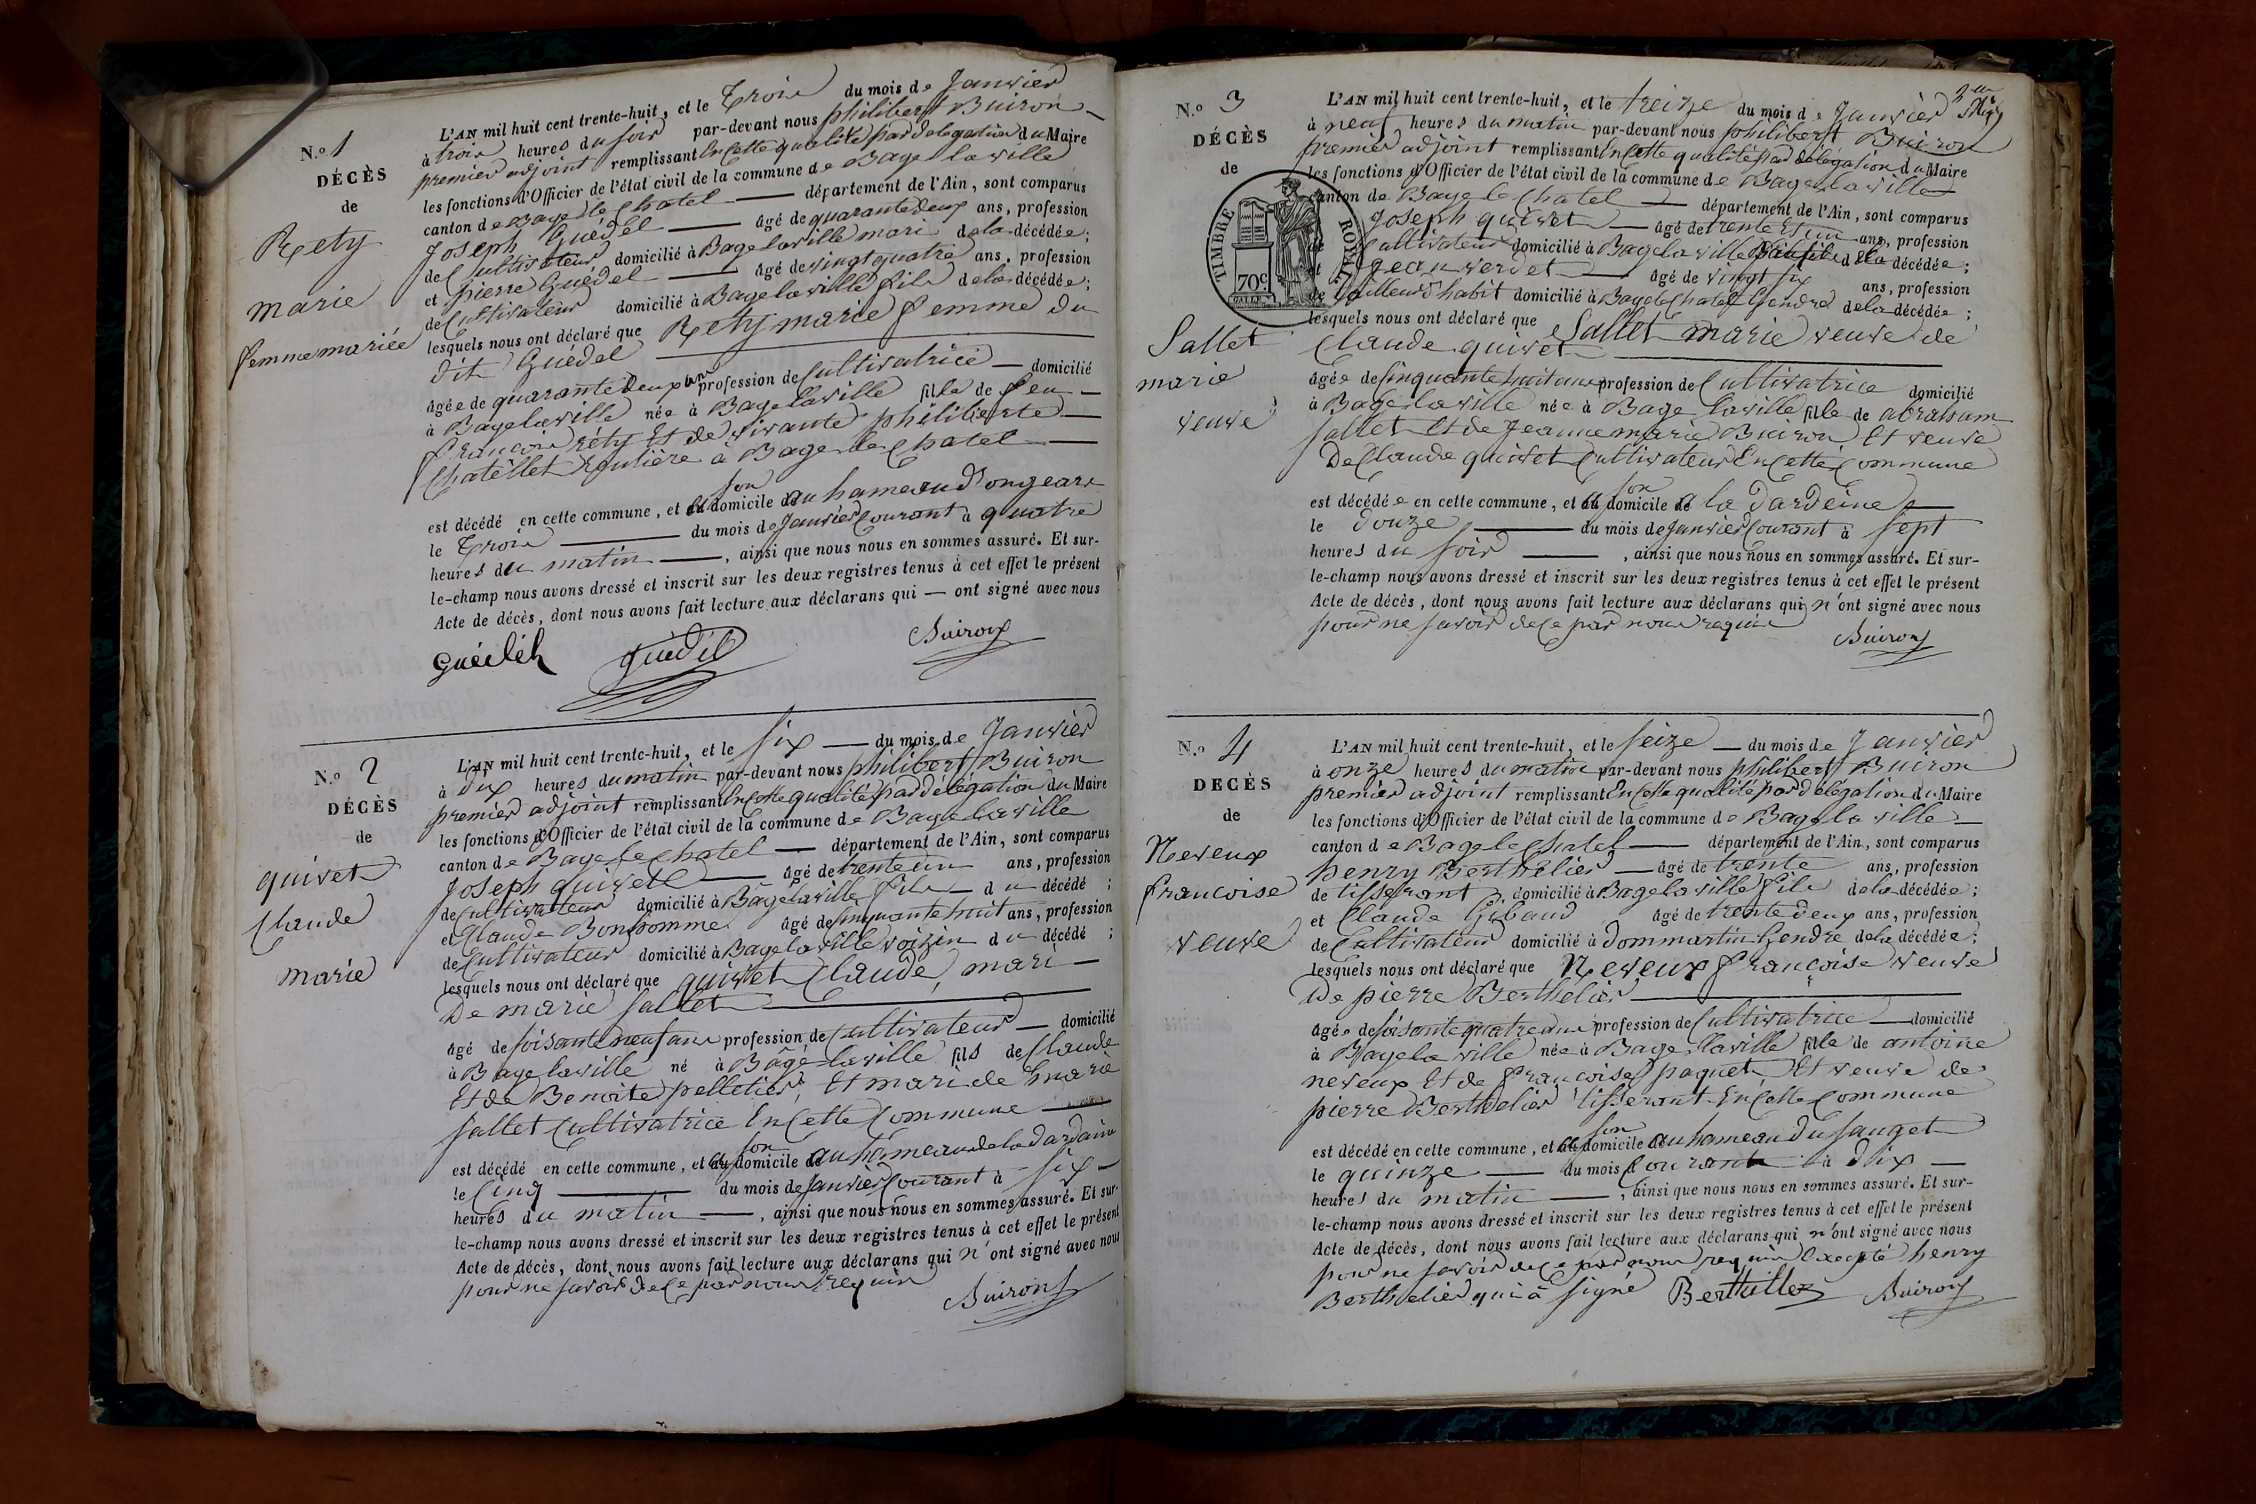 N.º 1
DÉCÈS
de
Rety
marie
femme mariée
L'AN mil huit cent trente-huit, et le Trois du mois de Janvier
à trois heures du soir par-devant nous philibert Buiron
premier adjoint remplissant En cette qualité par délégation du Maire
les fonctions d'Officier de l'état civil de la commune de Bage la ville
canton de Bage le Chatel département de l'Ain, sont comparus
Joseph Guédel âgé de quarante deux ans, profession
de Cultivateur domicilié à Bage la ville mari de la décédée;
et pierre Guédel âgé de vingt quatre ans, profession
de Cultivateur domicilié à Bage la ville fils de la décédée;
lesquels nous ont déclaré que Rety marie femme du
dit Guédel
âgée de quarante deux ans profession de Cultivatrice domicilié
à Bage la ville née à Bage la ville fille de feu
françois réty Et de vivante philiberte
Chatellet Rentière à Bage le Chatel
est décédé en cette commune, et au son domicile de au hameau d'ongears
le Trois du mois de Janvier Courant à quatre
heures du matin, ainsi que nous nous en sommes assuré. Et sur-
le-champ nous avons dressé et inscrit sur les deux registres tenus à cet effet le présent
Acte de décès, dont nous avons fait lecture aux déclarans qui ont signé avec nous
Guédel guédel Buiron
N.º 2
DÉCÈS
de
quivet
Claude
marie
L'AN mil huit cent trente-huit, et le six du mois de Janvier
à Dix heures du matin par-devant nous philibert Buiron
premier adjoint remplissant En cette qualité par délégation du Maire
les fonctions d'Officier de l'état civil de la commune de Bage la ville
canton de Bage le Chatel département de l'Ain, sont comparus
Joseph quivet âgé de trente un ans, profession
de Cultivateur domicilié à Bage la ville fils du décédé;
et Claude Bonhomme âgé de Cinquante huit ans, profession
de Cultivateur domicilié à Bage la ville voizin du décédé;
lesquels nous ont déclaré que quivet Claude, mari
De marie sallet
âgé de soisante neuf ans profession de Cultivateur domicilié
à Bage la ville né à Bâgé la ville fils de Claude
Et de Benoite pelletier, Et mari de marie
sallet Cultivatrice En Cette Commune
est décédé en cette commune, et au son domicile de au hameau de la Dardaine
le Cinq du mois de Janvier Courant à six
heures du matin, ainsi que nous nous en sommes assuré. Et sur-
le-champ nous avons dressé et inscrit sur les deux registres tenus à cet effet le présent
Acte de décès, dont nous avons fait lecture aux déclarans qui n'ont signé avec nous
pour ne savoir de Ce par nous requis Buiron
N.º 3
DÉCÈS
de
Sallet
marie
veuve
TIMBRE ROYAL
70c
L'AN mil huit cent trente-huit, et le treize du mois de Janvier
à neuf heures du matin par-devant nous philibert Buiron
premier adjoint remplissant En cette qualité par délégation du Maire
les fonctions d'Officier de l'état civil de la commune de Bage la ville
canton de Bage le Chatel département de l'Ain, sont comparus
Joseph quivet âgé de trente Et un ans, profession
de Cultivateur domicilié à Bage la ville fils de la décédée;
et Jean verdet âgé de vingt six ans, profession
de tailleur d'habit domicilié à Bage le Chatel Gendre de la décédée;
lesquels nous ont déclaré que Sallet marie veuve de
Claude quivet
âgée de Cinquante huit ans profession de Cultivatrice domicilié
à Bage la ville née à Bage la ville fille de abraham
sallet Et de Jeanne marie Buiron Et veuve
De Claude quivet Cultivateur En Cette Commune
est décédée en cette commune, et au son domicile de la Dardeine
le Douze du mois de Janvier Courant à sept
heures du soir, ainsi que nous nous en sommes assuré. Et sur-
le-champ nous avons dressé et inscrit sur les deux registres tenus à cet effet le présent
Acte de décès, dont nous avons fait lecture aux déclarans qui n'ont signé avec nous
pour ne savoir de Ce par nous requis Buiron
N.º 4
DECÈS
de
Neveux
francoise
veuve
L'AN mil huit cent trente-huit, et le seize du mois de Janvier
à onze heures du matin par-devant nous philibert Buiron
premier adjoint remplissant En Cette qualité par Délégation du Maire
les fonctions d'Officier de l'état civil de la commune de Bage la ville
canton de Bage le Chatel département de l'Ain, sont comparus
henry Berthelier âgé de trente ans, profession
de tisserant domicilié à Bage la ville fils de la décédée;
et Claude Gibaud âgé de trente deux ans, profession
de Cultivateur domicilié à Dommartin Gendre de la décédée;
lesquels nous ont déclaré que Neveux françoise veuve
De pierre Berthelier
âgée de soisante quatre ans profession de Cultivatrice domicilié
à Bage la ville née à Bage la ville fille de antoine
neveux Et de françoise paquet Et veuve de
pierre Berthelier tisserant En Cette Commune
est décédé en cette commune, et au son domicile de au hameau du sauget
le quinze du mois Courant à Dix
heures du matin, ainsi que nous nous en sommes assuré. Et sur-
le-champ nous avons dressé et inscrit sur les deux registres tenus à cet effet le présent
Acte de décès, dont nous avons fait lecture aux déclarans qui n'ont signé avec nous
pour ne savoir de Ce par nous requis Excepté henry
Berthelier qui à signé Berthellez Buiron